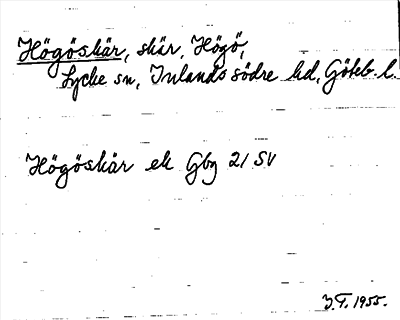 Högöskär, skär, Högö,
Lycke sn, Inlands södre hd, Göteb. l.
Högöskär ek Gbg 21 SV
J.T. 1955.